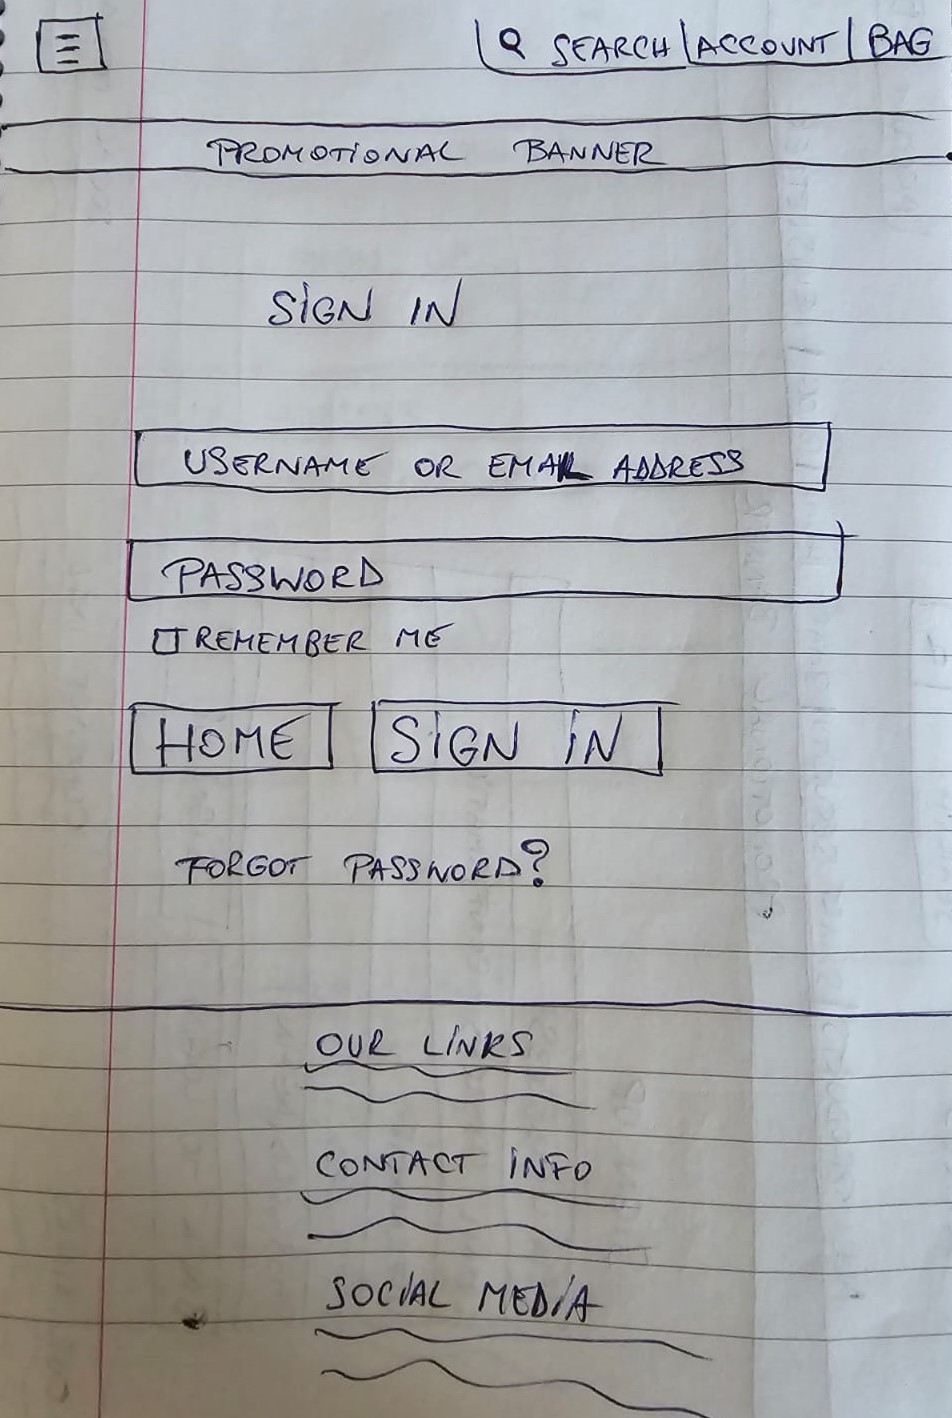 SEARCH | ACCOUNT | BAG
PROMOTIONAL BANNER
SIGN IN
USERNAME OR EMAIL ADDRESS
PASSWORD
REMEMBER ME
HOME SIGN IN
FORGOT PASSWORD?
OUR LINKS
CONTACT INFO
SOCIAL MEDIA